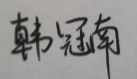 韩冠南